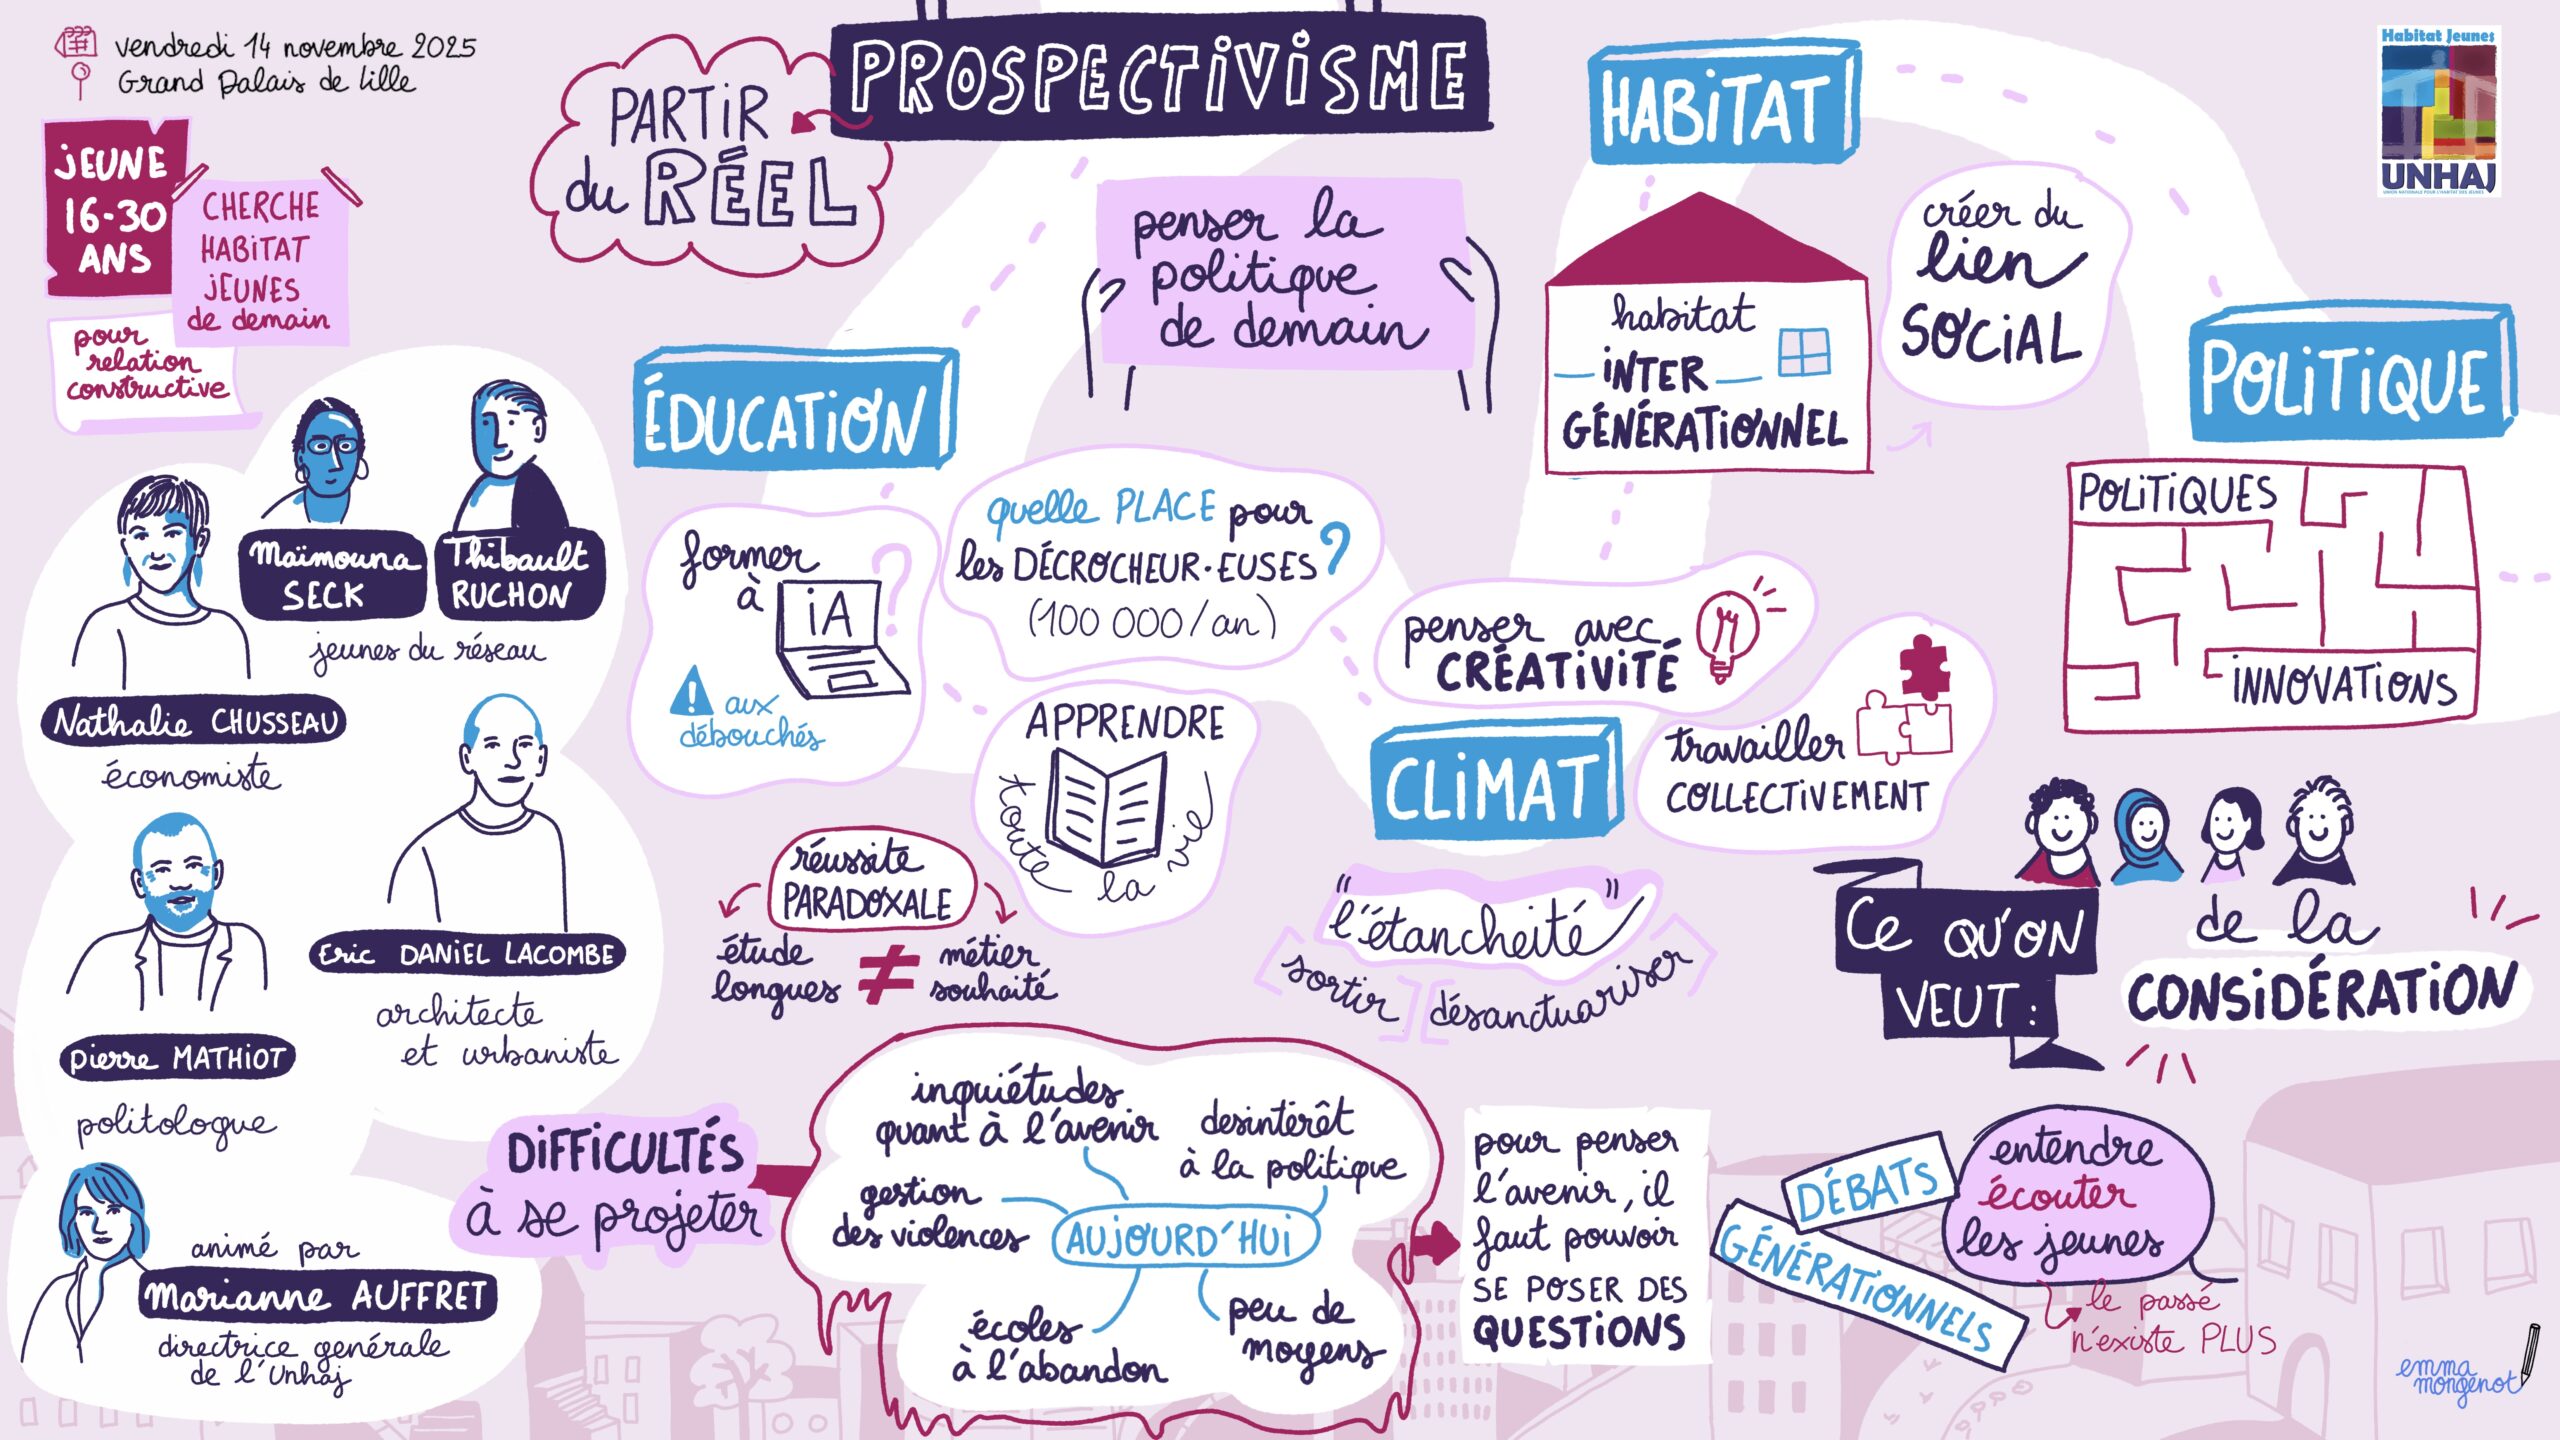 vendredi 14 novembre 2025
Grand Palais de Lille
JEUNE
16-30
ANS
CHERCHE
HABITAT
JEUNES
de demain
pour
relation
constructive
PROSPECTIVISME
PARTIR
du RÉEL
penser la
politique
de demain
Habitat Jeunes
UNHAJ
UNION NATIONALE POUR L'HABITAT DES JEUNES
Maïmouna
SECK
Thibault
RUCHON
jeunes du réseau
Nathalie CHUSSEAU
économiste
Eric DANIEL LACOMBE
architecte
et urbaniste
Pierre MATHIOT
politologue
animé par
Marianne AUFFRET
directrice générale
de l'Unhaj
ÉDUCATION
former
à
iA
?
! aux
débouchés
quelle PLACE pour
les DÉCROCHEUR·EUSES ?
(100 000/an)
APPRENDRE
toute la vie
réussite
PARADOXALE
étude
longues
≠
métier
souhaité
HABITAT
habitat
INTER
GÉNÉRATIONNEL
créer du
lien
SOCIAL
penser avec
CRÉATIVITÉ
travailler
COLLECTIVEMENT
CLIMAT
"l'étancheité"
sortir
désanctuariser
POLITIQUE
POLITIQUES
INNOVATIONS
CE QU'ON
VEUT :
de la
CONSIDÉRATION
DIFFICULTÉS
à se projeter
inquiétudes
quant à l'avenir
desintérêt
à la politique
gestion
des violences
AUJOURD'HUI
écoles
à l'abandon
peu de
moyens
pour penser
l'avenir, il
faut pouvoir
SE POSER DES
QUESTIONS
DÉBATS
GÉNÉRATIONNELS
entendre
écouter
les jeunes
le passé
n'existe PLUS
emma
mongenot